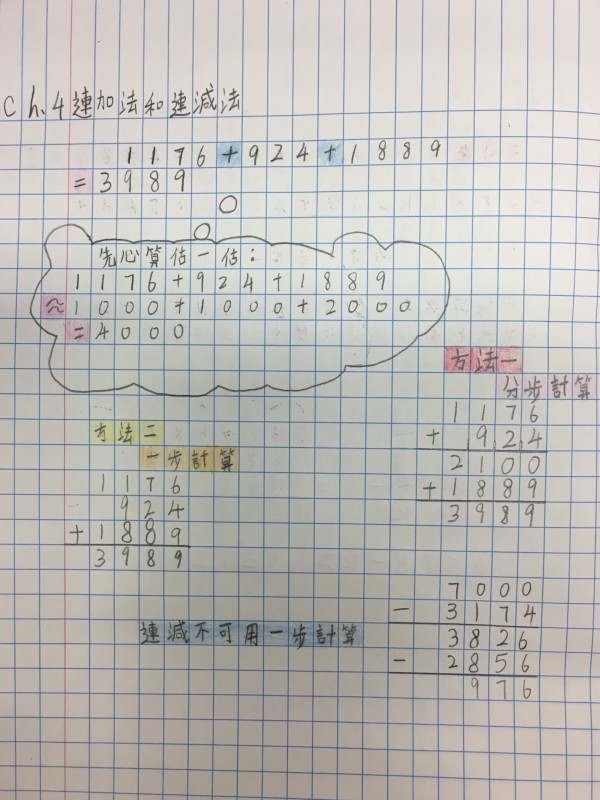 Ch.4連加法和連減法
1176+924+1889
=3989
先心算估一估：
1176+924+1889
≈1000+1000+2000
=4000
方法一
分步計算
1176
+ 924
2100
+1889
3989
方法二
一步計算
1176
924
+1889
3989
連減不可用一步計算
7000
- 3174
3826
- 2856
976